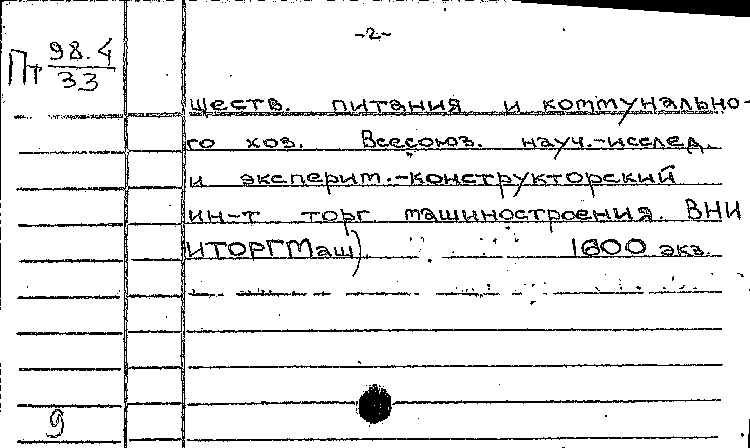 -2-
Пт 98.4
33
ществ. питания и коммунально-
го хоз. Всесоюз. науч.-исслед.
и эксперим.-конструкторский
ин-т торг машиностроения. ВНИ
ИТОРГМаш) 1600 экз.
9